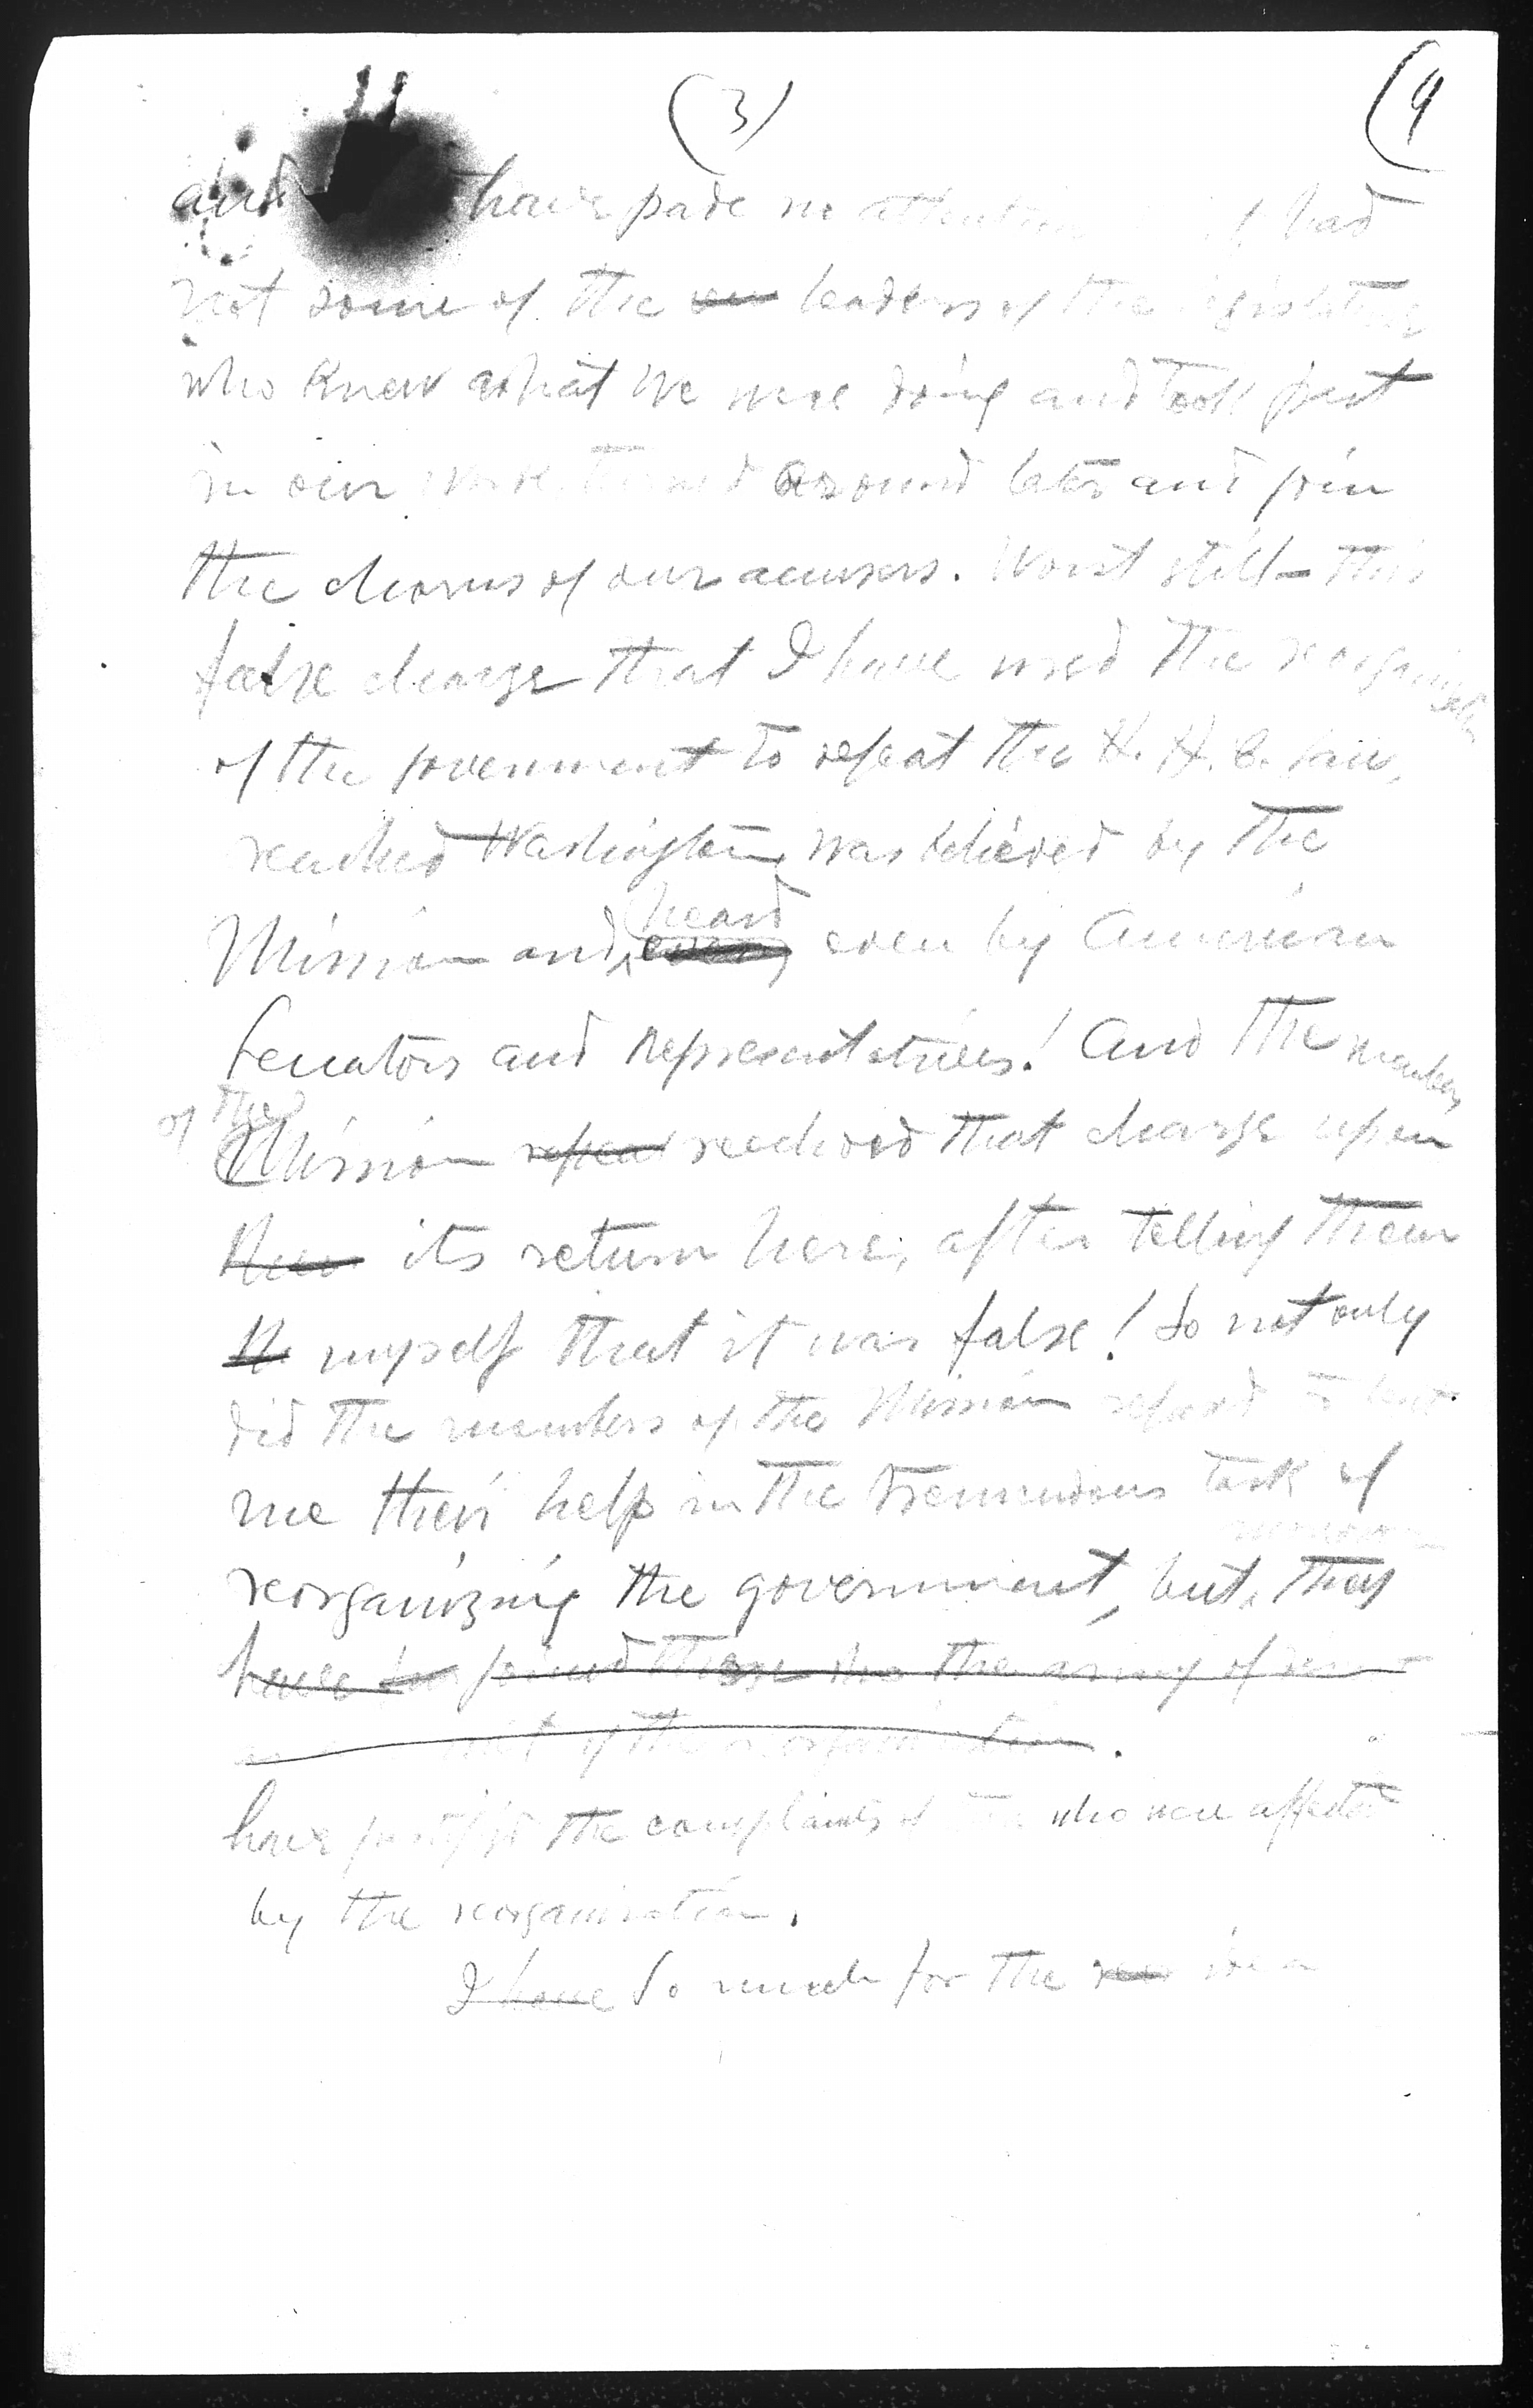 (3)
(9
and have pade no attention if had
not some of the leaders of the legislature
who knew what we were doing and took part
in our work turned around later and join
the chorus of our accusers. Worst still – this
false charge that I have used the reorganization
of the government to defeat the H. H. C. bill,
reached Washington, was believed by the
Mission and heard even by American
Senators and Representatives! And the members
of the Mission received that charge upon
its return here, after telling them
myself that it was false! So not only
did the members of the Mission refused to lend
me their help in the tremendous task of
reorganizing the government, but, they
have joined those the army of
of the reorganization.
have justified the complaints of who were affected
by the reorganization.
I have So much for the